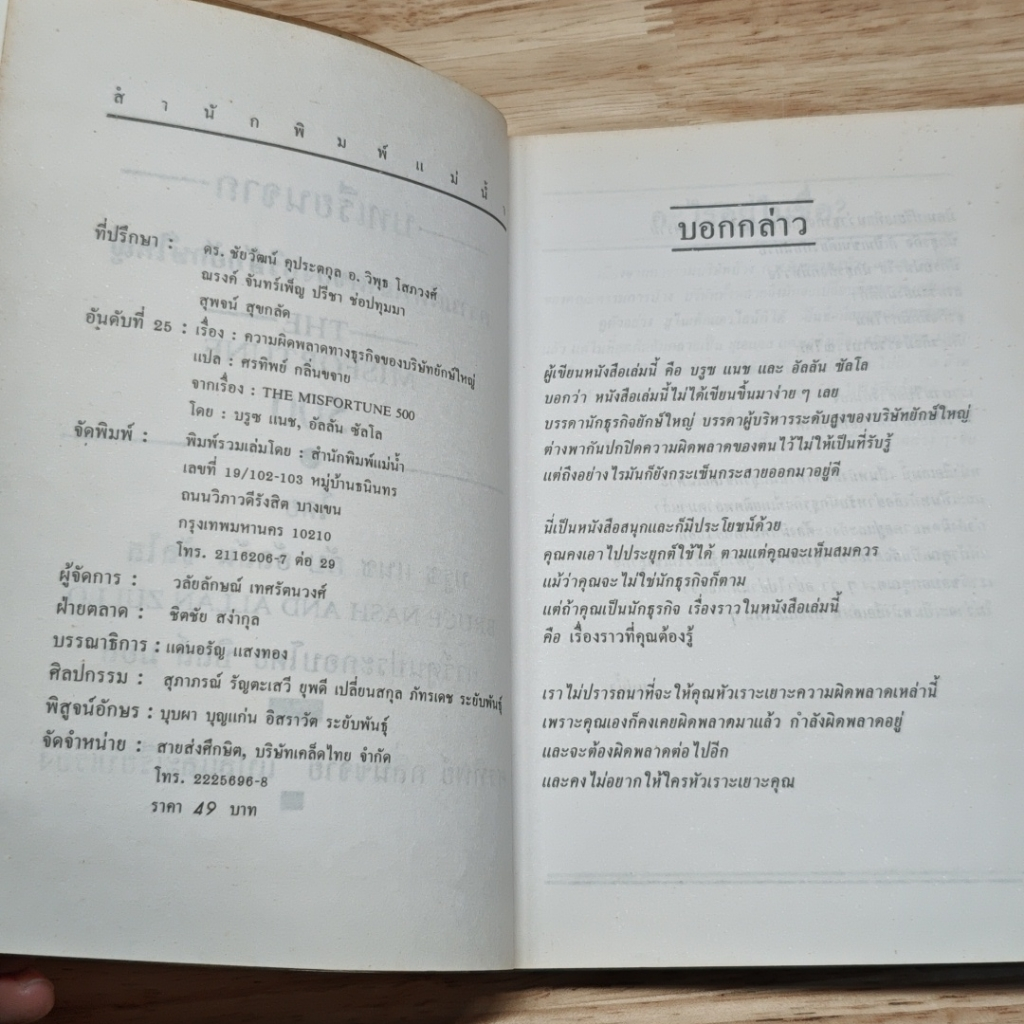 สำนักพิมพ์แม่น้ำ
ที่ปรึกษา : ดร. ชัยวัฒน์ คุประตกุล อ. วิพุธ โสภวงศ์
ณรงค์ จันทร์เพ็ญ ปรีชา ช่อปทุมมา
สุพจน์ สุขกลัด
อันดับที่ 25 : เรื่อง : ความผิดพลาดทางธุรกิจของบริษัทยักษ์ใหญ่
แปล : ศรทิพย์ กลิ่นขจาย
จากเรื่อง : THE MISFORTUNE 500
โดย : บรูซ แนช, อัลลัน ซัลโล
จัดพิมพ์ : พิมพ์รวมเล่มโดย : สำนักพิมพ์แม่น้ำ
เลขที่ 19/102-103 หมู่บ้านธนินทร
ถนนวิภาวดีรังสิต บางเขน
กรุงเทพมหานคร 10210
โทร. 2116206-7 ต่อ 29
ผู้จัดการ : วลัยลักษณ์ เทศรัตนวงศ์
ฝ่ายตลาด : ชิตชัย สง่ากุล
บรรณาธิการ : แดนอรัญ แสงทอง
ศิลปกรรม : สุภาภรณ์ รัญตะเสวี ยุพดี เปลี่ยนสกุล ภัทรเดช ระยับพันธุ์
พิสูจน์อักษร : บุบผา บุญแก่น อิสราวัต ระยับพันธุ์
จัดจำหน่าย : สายส่งศึกษิต, บริษัทเคล็ดไทย จำกัด
โทร. 2225696-8
ราคา 49 บาท
บอกกล่าว
ผู้เขียนหนังสือเล่มนี้ คือ บรูซ แนช และ อัลลัน ซัลโล
บอกว่า หนังสือเล่มนี้ไม่ได้เขียนขึ้นมาง่าย ๆ เลย
บรรดานักธุรกิจยักษ์ใหญ่ บรรดาผู้บริหารระดับสูงของบริษัทยักษ์ใหญ่
ต่างพากันปกปิดความผิดพลาดของตนไว้ไม่ให้เป็นที่รับรู้
แต่ถึงอย่างไรมันก็ยังกระเซ็นกระสายออกมาอยู่ดี
นี่เป็นหนังสือสนุกและก็มีประโยชน์ด้วย
คุณคงเอาไปประยุกต์ใช้ได้ ตามแต่คุณจะเห็นสมควร
แม้ว่าคุณจะไม่ใช่นักธุรกิจก็ตาม
แต่ถ้าคุณเป็นนักธุรกิจ เรื่องราวในหนังสือเล่มนี้
คือ เรื่องราวที่คุณต้องรู้
เราไม่ปรารถนาที่จะให้คุณหัวเราะเยาะความผิดพลาดเหล่านี้
เพราะคุณเองก็คงเคยผิดพลาดมาแล้ว กำลังผิดพลาดอยู่
และจะต้องผิดพลาดต่อไปอีก
และคงไม่อยากให้ใครหัวเราะเยาะคุณ